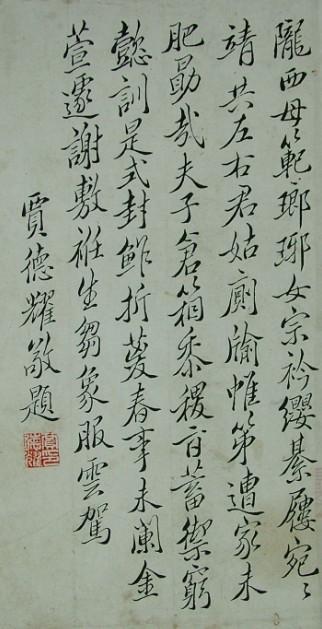 隴西母範瑯琊女宗衿纓綦屨宛〻
靖共左右君姑廁牏帷第遭家未
肥勗哉夫子倉箱黍稷旨蓄禦窮
懿訓是式封鮓折葼春事未闌金
萱遽謝敷衽生芻象服雲駕
賈德耀敬題